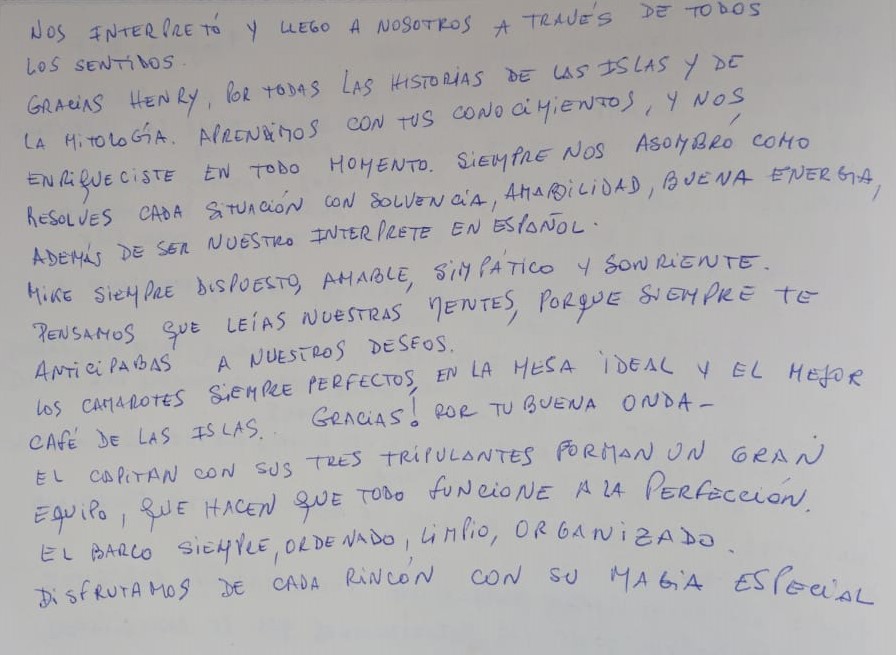 NOS INTERPRETÓ Y LLEGO A NOSOTROS A TRAVÉS DE TODOS
LOS SENTIDOS.
GRACIAS HENRY, POR TODAS LAS HISTORIAS DE LAS ISLAS Y DE
LA MITOLOGÍA. APRENDIMOS CON TUS CONOCIMIENTOS, Y NOS
ENRIQUECISTE EN TODO MOMENTO. SIEMPRE NOS ASOMBRÓ COMO
RESOLVES CADA SITUACIÓN CON SOLVENCIA, AMABILIDAD, BUENA ENERGIA,
ADEMÁS DE SER NUESTRO INTERPRETE EN ESPAÑOL.
MIKE SIEMPRE DISPUESTO, AMABLE, SIMPÁTICO Y SONRIENTE.
PENSAMOS QUE LEÍAS NUESTRAS MENTES, PORQUE SIEMPRE TE
ANTICIPABAS A NUESTROS DESEOS.
LOS CAMAROTES SIEMPRE PERFECTOS, EN LA MESA IDEAL Y EL MEJOR
CAFÉ DE LAS ISLAS. GRACIAS! POR TU BUENA ONDA-
EL CAPITAN CON SUS TRES TRIPULANTES FORMAN UN GRAN
EQUIPO, QUE HACEN QUE TODO FUNCIONE A LA PERFECCIÓN.
EL BARCO SIEMPRE, ORDENADO, LIMPIO, ORGANIZADO.
DISFRUTAMOS DE CADA RINCÓN CON SU MAGIA ESPECIAL